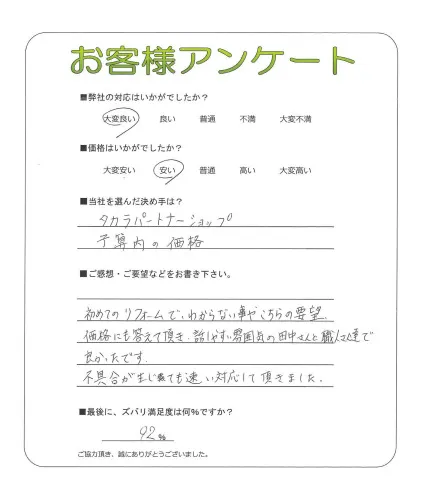 お客様アンケート
■弊社の対応はいかがでしたか？
大変良い 良い 普通 不満 大変不満
■価格はいかがでしたか？
大変安い 安い 普通 高い 大変高い
■当社を選んだ決め手は？
タカラパートナーショップ
予算内の価格
■ご感想・ご要望などをお書き下さい。
初めてのリフォームで、わからない事やこちらの要望、
価格にも答えて頂き、話しやすい雰囲気の田中さんと職人さん達で
良かったです。
不具合が生じても速い対応して頂きました。
■最後に、ズバリ満足度は何％ですか？
92％
ご協力頂き、誠にありがとうございました。